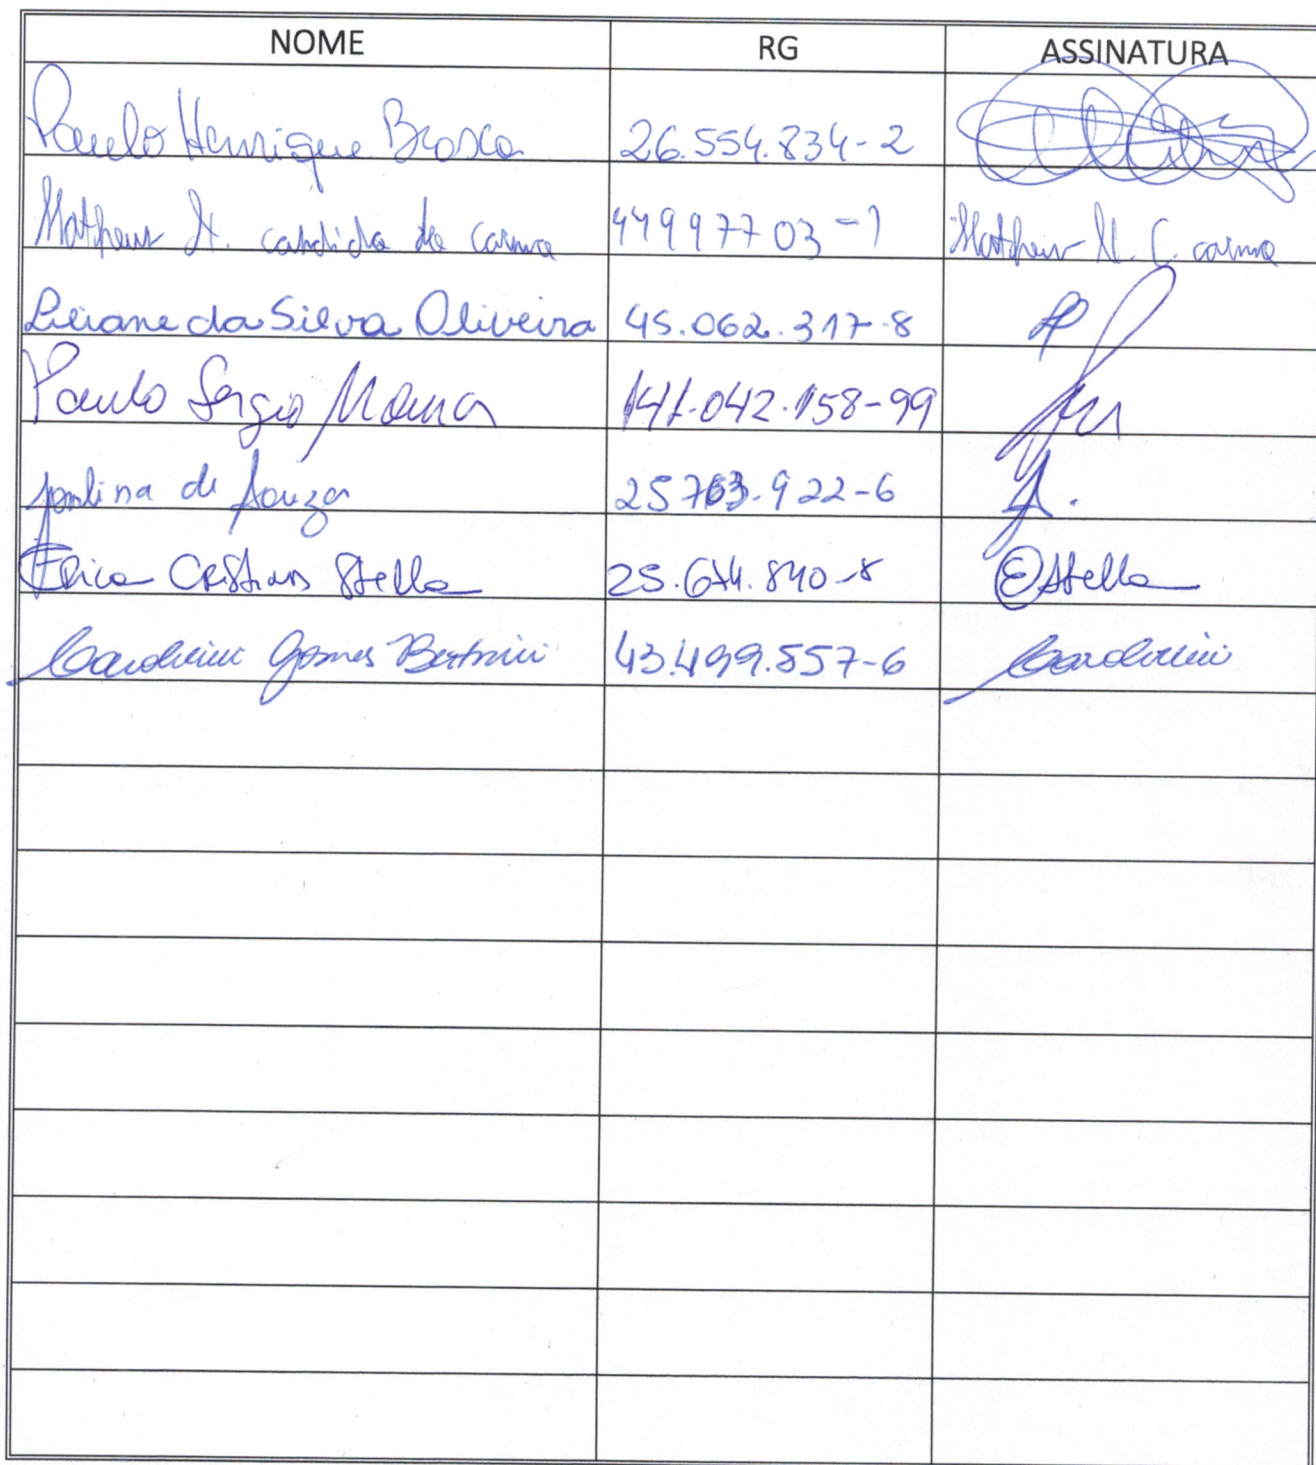 NOME RG ASSINATURA
Paulo Henrique Brosco 26.554.834-2
Matheus H. candido do carmo 44997703-1 Matheus H. C. carmo
Liliane da Silva Oliveira 45.062.317-8
Paulo Sergio 141.042.158-99
de Souza 25763.922-6
Erica Cristians Stella 25.674.840-8 EStella
Gomes 43.499.557-6